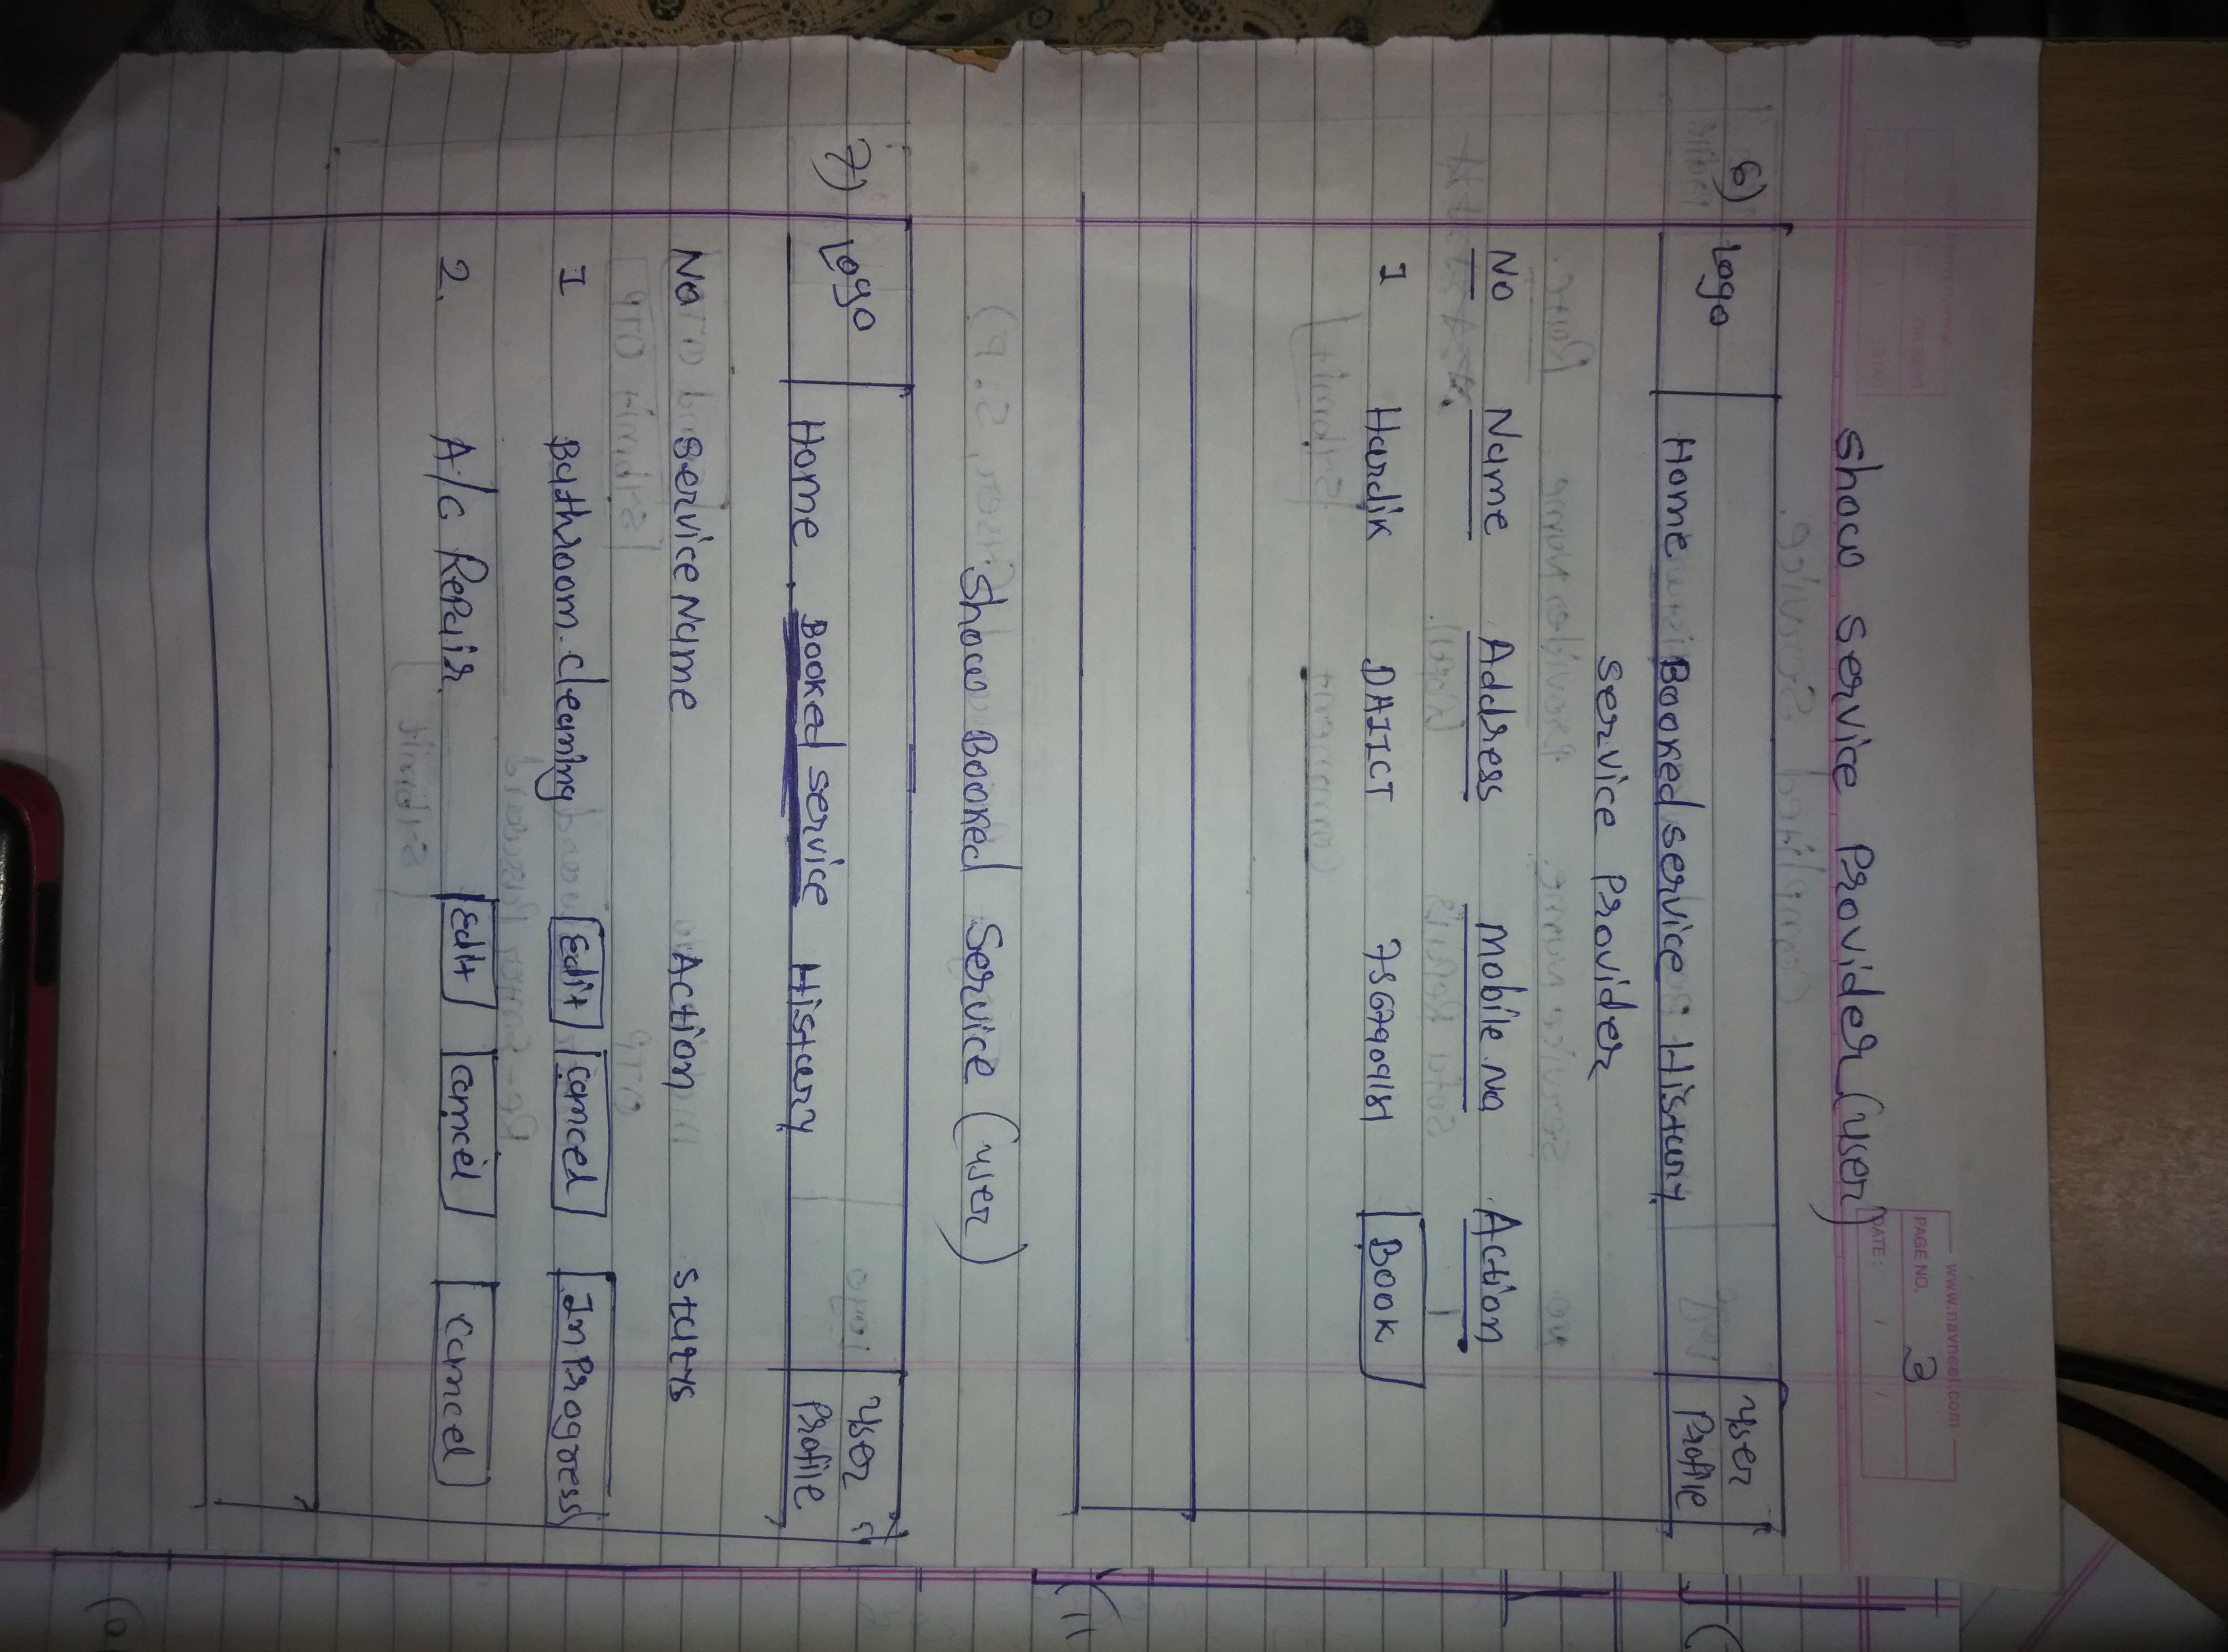 www.navneet.com
PAGE NO. 3
DATE : / /
Show Service Provider (user)
6) Logo Home Booked service History User Profile
Service Provider
No Name Address Mobile no Action
1 Hardik DAIICT Book
Show Booked Service (user)
7) Logo Home Booked service History User Profile
No Service Name Action Status
1 Bathroom cleaning Edit Cancel In Progress
2. A/C Repair Edit Cancel Cancel